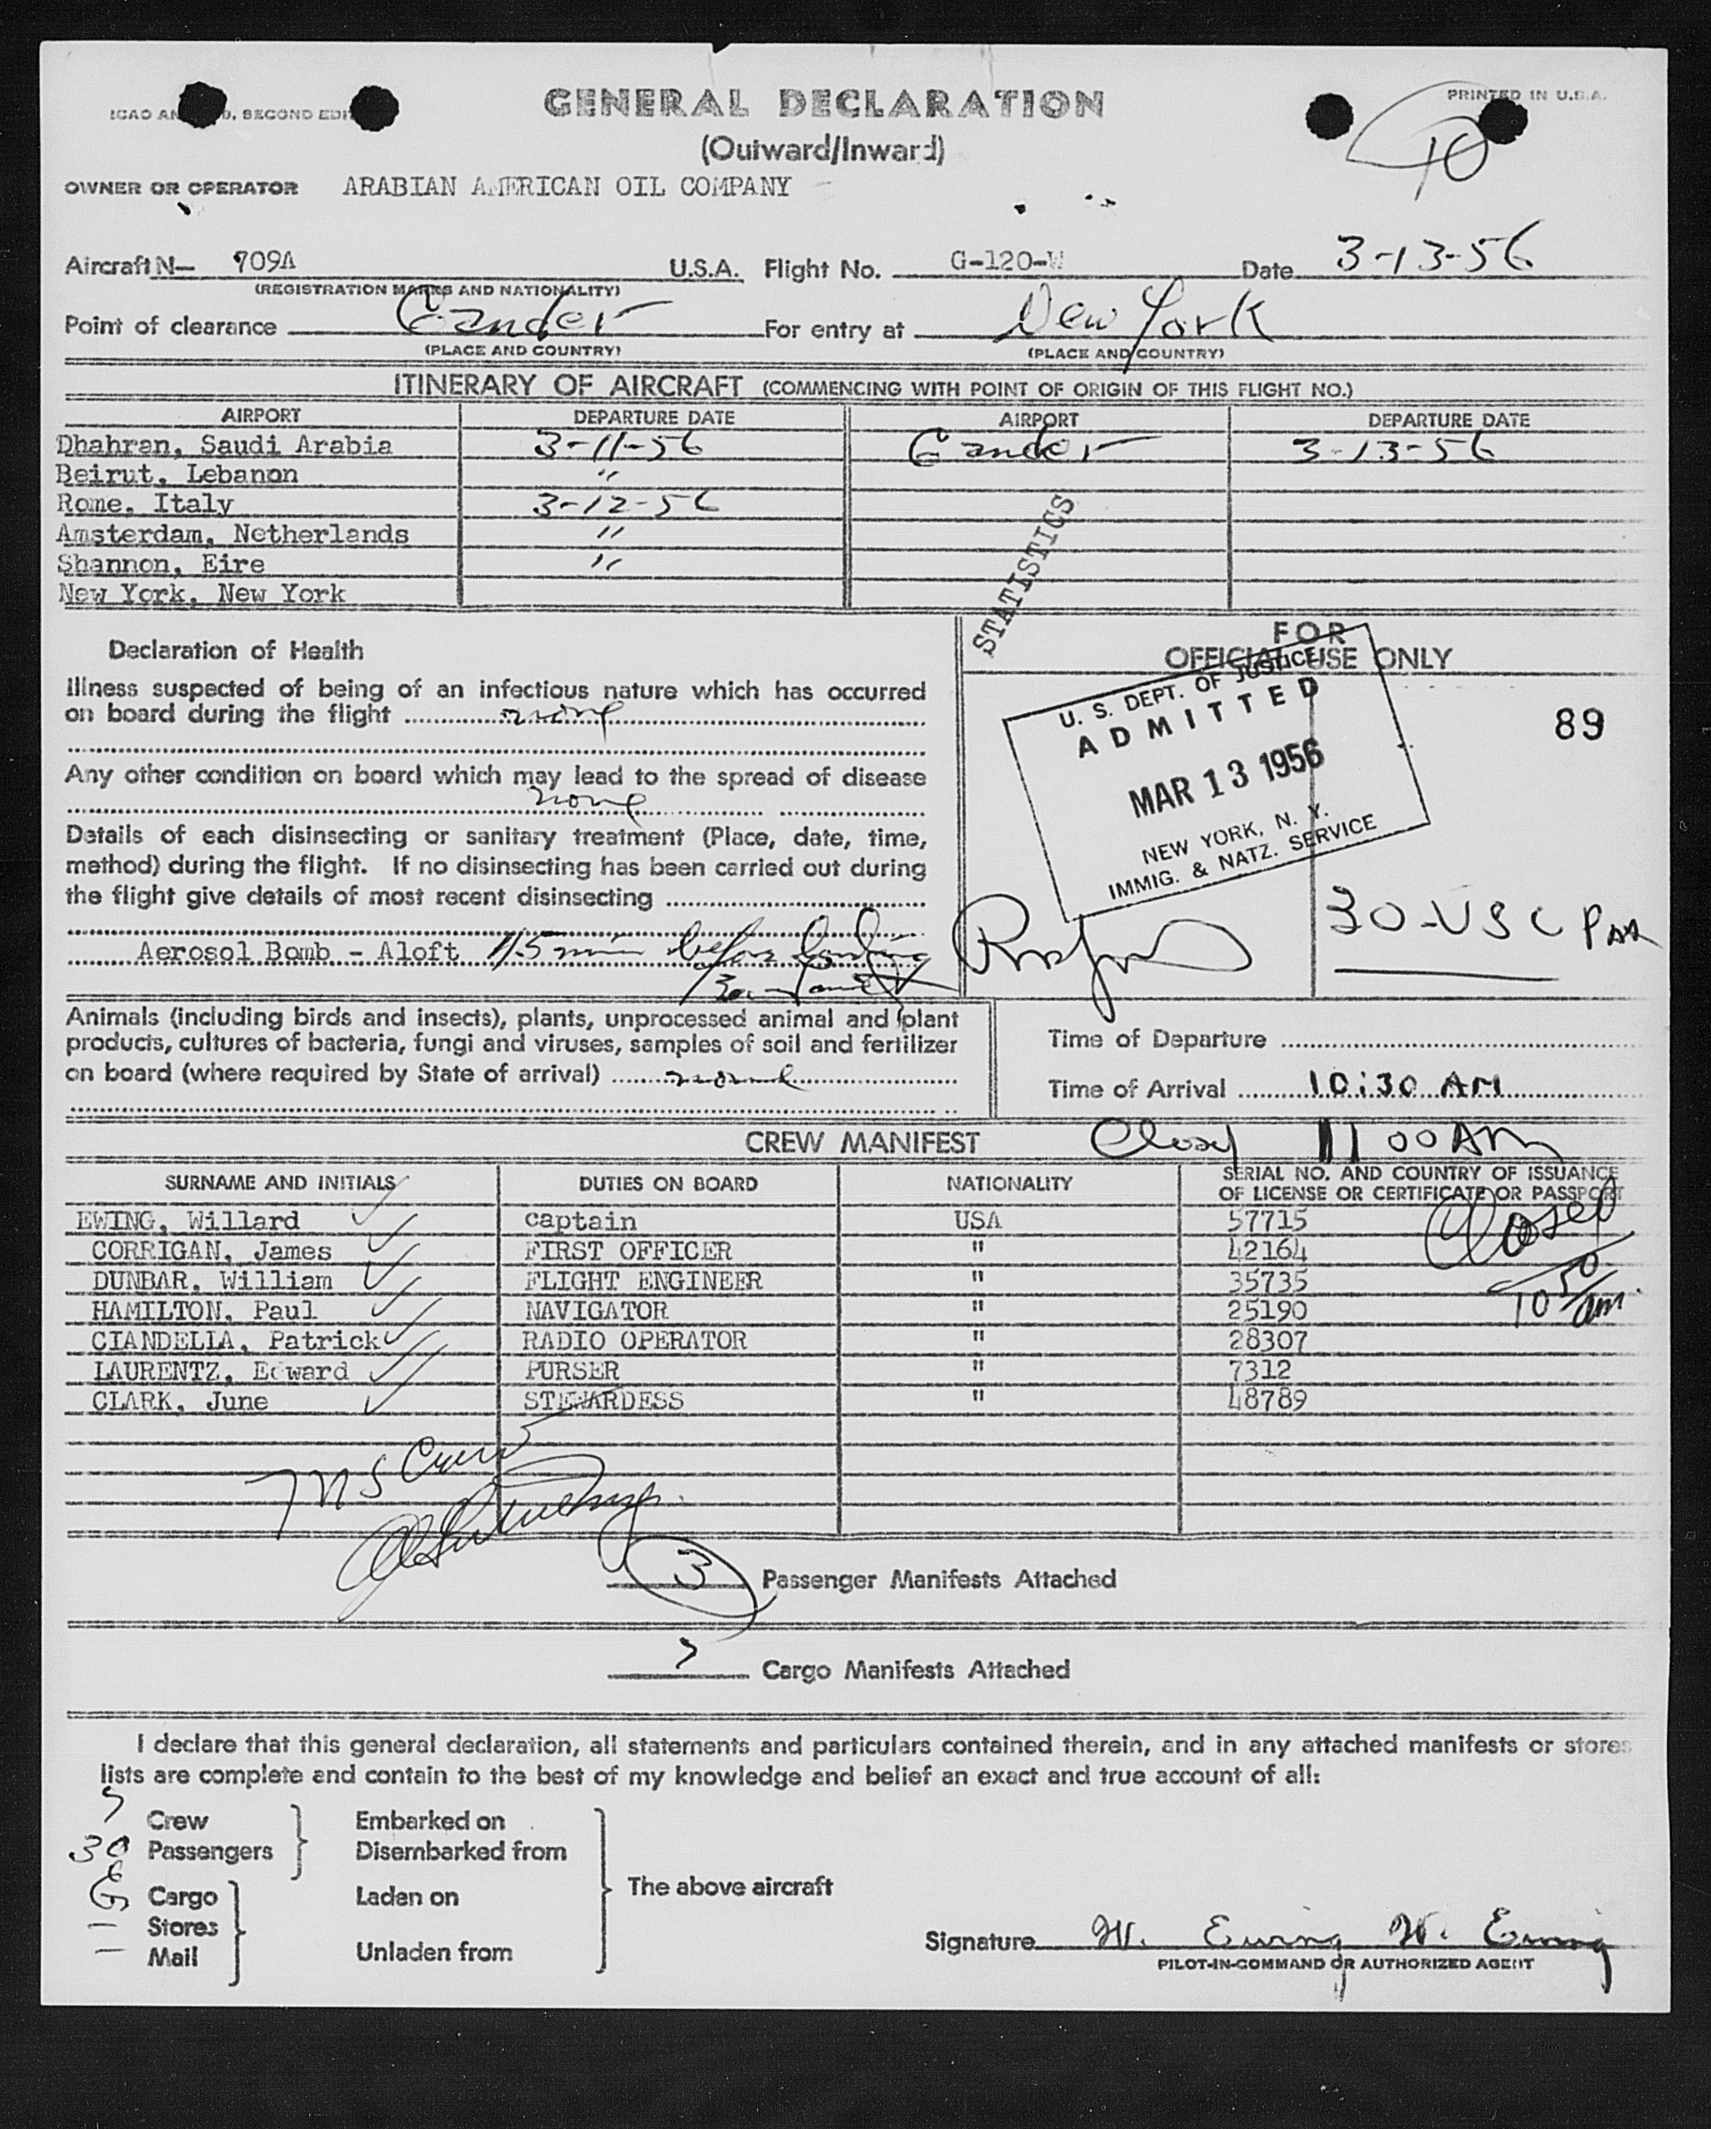 GENERAL DECLARATION
PRINTED IN U.S.A.
SECOND
(Outward/Inward)
10
OWNER OR OPERATOR ARABIAN AMERICAN OIL COMPANY
Aircraft N- 709A U.S.A. Flight No. G-120-W Date 3-13-56
(REGISTRATION MARKS AND NATIONALITY)
Point of clearance Gander For entry at New York
(PLACE AND COUNTRY) (PLACE AND COUNTRY)
ITINERARY OF AIRCRAFT (COMMENCING WITH POINT OF ORIGIN OF THIS FLIGHT NO.)
AIRPORT DEPARTURE DATE AIRPORT DEPARTURE DATE
Dhahran, Saudi Arabia 3-11-56 Gander 3-13-56
Beirut, Lebanon "
Rome, Italy 3-12-56
Amsterdam, Netherlands "
Shannon, Eire "
New York, New York
STATISTICS
Declaration of Health
Illness suspected of being of an infectious nature which has occurred
on board during the flight none
Any other condition on board which may lead to the spread of disease
none
Details of each disinsecting or sanitary treatment (Place, date, time,
method) during the flight. If no disinsecting has been carried out during
the flight give details of most recent disinsecting
Aerosol Bomb - Aloft 15 min before landing
FOR
OFFICIAL USE ONLY
U. S. DEPT. OF JUSTICE
ADMITTED
MAR 13 1956
NEW YORK, N. Y.
IMMIG. & NATZ. SERVICE
89
30-USC
Animals (including birds and insects), plants, unprocessed animal and plant
products, cultures of bacteria, fungi and viruses, samples of soil and fertilizer
on board (where required by State of arrival)
Time of Departure
Time of Arrival 10:30 AM
CREW MANIFEST Closed 11 00 AM
SURNAME AND INITIALS DUTIES ON BOARD NATIONALITY SERIAL NO. AND COUNTRY OF ISSUANCE
OF LICENSE OR CERTIFICATE OR PASSPORT
EWING, Willard captain USA 57715
CORRIGAN, James FIRST OFFICER " 42164
DUNBAR, William FLIGHT ENGINEER " 35735
HAMILTON, Paul NAVIGATOR " 25190
CIANDELLA, Patrick RADIO OPERATOR " 28307
LAURENTZ, Edward PURSER " 7312
CLARK, June STEWARDESS " 48789
Closed
10 50/am
Crew
3 Passenger Manifests Attached
Cargo Manifests Attached
I declare that this general declaration, all statements and particulars contained therein, and in any attached manifests or stores
lists are complete and contain to the best of my knowledge and belief an exact and true account of all:
7 Crew Embarked on
30 Passengers Disembarked from
The above aircraft
Cargo Laden on
- Stores
- Mail Unladen from
Signature W. Ewing W. Ewing
PILOT-IN-COMMAND OR AUTHORIZED AGENT